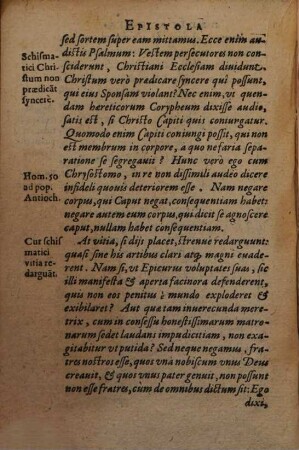 EPISTOLA
sed sortem super eam mittamus. Ecce enim au-
distis Psalmum: Vestem persecutores non con-
sciderunt, Christiani Ecclesiam diuidunt.
Christum verò prædicare syncere qui possunt,
qui eius Sponsam violant? Nec enim, vt quen-
dam hereticorum Corypheum dixisse audio,
satis est, si Christo Capiti quis coniurgatur.
Quomodo enim Capiti coniungi possit, qui non
est membrum in corpore, a quo nefaria separa-
tione se segregauit? Hunc verò ego cum
Chrysostomo, in re non dissimili audeo dicere
infideli quouis deteriorem esse. Nam negare
corpus, qui Caput negat, consequentiam habet:
negare autem eum corpus, qui dicit se agnoscere
caput, nullam habet consequentiam.
At vitia, si dijs placet, strenue redarguunt:
quasi sine his artibus clari atq; magni euade-
rent. Nam si, vt Epicurus voluptates suas, sic
illi manifesta & aperta facinora defenderent,
quis non eos penitus è mundo exploderet &
exibilaret? Aut qua tam inuerecunda mere-
trix, cum in consessu honestissimarum matro-
narum sedet laudans impudicitiam, non ex-
agitabitur vt putida? Sed neque negamus, fra-
tres nostros esse, quos vnà nobiscum vnus Deus
creauit, & quos vnus pater genuit, non possunt
non esse fratres, cum de omnibus dictum sit: Ego
dixi,
Schisma-
tici Chri-
stum non
prædicāt
syncerè.
Hom. 50
ad pop.
Antioch.
Cur schis
matici
vitia re-
darguāt.